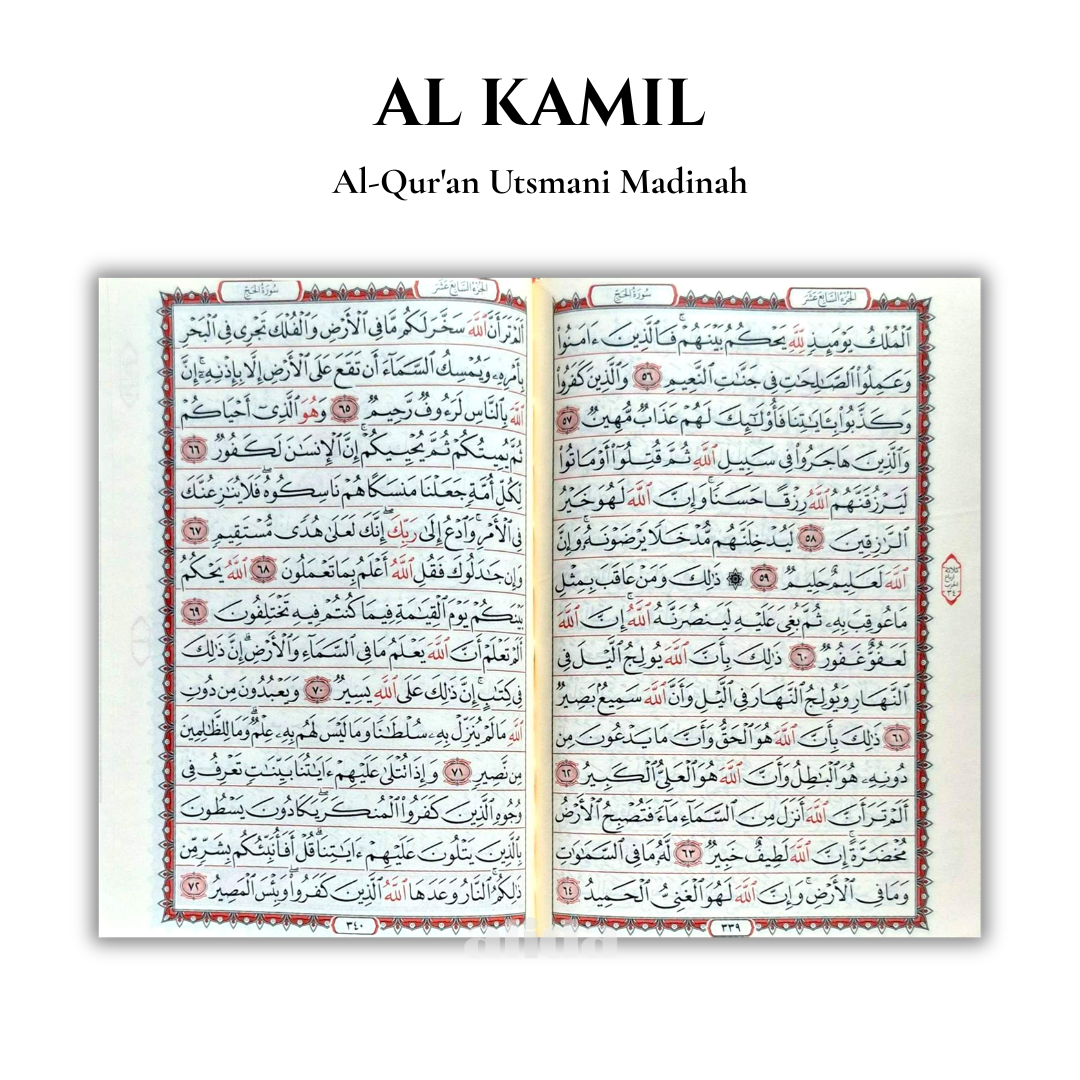 AL KAMIL
Al-Qur'an Utsmani Madinah
الجُزْءُ السَّابِعَ عَشَرَ
سُورَةُ الحَجّ
ٱلْمُلْكُ يَوْمَئِذٍ لِّلَّهِ يَحْكُمُ بَيْنَهُمْ ۚ فَٱلَّذِينَ ءَامَنُوا۟
وَعَمِلُوا۟ ٱلصَّـٰلِحَـٰتِ فِى جَنَّـٰتِ ٱلنَّعِيمِ ٥٦ وَٱلَّذِينَ كَفَرُوا۟
وَكَذَّبُوا۟ بِـَٔايَـٰتِنَا فَأُو۟لَـٰٓئِكَ لَهُمْ عَذَابٌ مُّهِينٌ ٥٧
وَٱلَّذِينَ هَاجَرُوا۟ فِى سَبِيلِ ٱللَّهِ ثُمَّ قُتِلُوٓا۟ أَوْ مَاتُوا۟
لَيَرْزُقَنَّهُمُ ٱللَّهُ رِزْقًا حَسَنًا ۚ وَإِنَّ ٱللَّهَ لَهُوَ خَيْرُ
ٱلرَّٰزِقِينَ ٥٨ لَيُدْخِلَنَّهُم مُّدْخَلًا يَرْضَوْنَهُۥ ۗ وَإِنَّ
ٱللَّهَ لَعَلِيمٌ حَلِيمٌ ٥٩ ۞ ذَٰلِكَ وَمَنْ عَاقَبَ بِمِثْلِ
مَا عُوقِبَ بِهِۦ ثُمَّ بُغِىَ عَلَيْهِ لَيَنصُرَنَّهُ ٱللَّهُ ۗ إِنَّ ٱللَّهَ
لَعَفُوٌّ غَفُورٌ ٦٠ ذَٰلِكَ بِأَنَّ ٱللَّهَ يُولِجُ ٱلَّيْلَ فِى
ٱلنَّهَارِ وَيُولِجُ ٱلنَّهَارَ فِى ٱلَّيْلِ وَأَنَّ ٱللَّهَ سَمِيعٌۢ بَصِيرٌ
٦١ ذَٰلِكَ بِأَنَّ ٱللَّهَ هُوَ ٱلْحَقُّ وَأَنَّ مَا يَدْعُونَ مِن
دُونِهِۦ هُوَ ٱلْبَـٰطِلُ وَأَنَّ ٱللَّهَ هُوَ ٱلْعَلِىُّ ٱلْكَبِيرُ ٦٢
أَلَمْ تَرَ أَنَّ ٱللَّهَ أَنزَلَ مِنَ ٱلسَّمَآءِ مَآءً فَتُصْبِحُ ٱلْأَرْضُ
مُخْضَرَّةً ۗ إِنَّ ٱللَّهَ لَطِيفٌ خَبِيرٌ ٦٣ لَّهُۥ مَا فِى ٱلسَّمَـٰوَٰتِ
وَمَا فِى ٱلْأَرْضِ ۗ وَإِنَّ ٱللَّهَ لَهُوَ ٱلْغَنِىُّ ٱلْحَمِيدُ ٦٤
٣٣٩
ثلاثة
أرباع
الحزب
٣٤
الجُزْءُ السَّابِعَ عَشَرَ
سُورَةُ الحَجّ
أَلَمْ تَرَ أَنَّ ٱللَّهَ سَخَّرَ لَكُم مَّا فِى ٱلْأَرْضِ وَٱلْفُلْكَ تَجْرِى فِى ٱلْبَحْرِ
بِأَمْرِهِۦ وَيُمْسِكُ ٱلسَّمَآءَ أَن تَقَعَ عَلَى ٱلْأَرْضِ إِلَّا بِإِذْنِهِۦٓ ۗ إِنَّ
ٱللَّهَ بِٱلنَّاسِ لَرَءُوفٌ رَّحِيمٌ ٦٥ وَهُوَ ٱلَّذِىٓ أَحْيَاكُمْ
ثُمَّ يُمِيتُكُمْ ثُمَّ يُحْيِيكُمْ ۗ إِنَّ ٱلْإِنسَـٰنَ لَكَفُورٌ ٦٦
لِّكُلِّ أُمَّةٍ جَعَلْنَا مَنسَكًا هُمْ نَاسِكُوهُ ۖ فَلَا يُنَـٰزِعُنَّكَ
فِى ٱلْأَمْرِ ۚ وَٱدْعُ إِلَىٰ رَبِّكَ ۖ إِنَّكَ لَعَلَىٰ هُدًى مُّسْتَقِيمٍ ٦٧
وَإِن جَـٰدَلُوكَ فَقُلِ ٱللَّهُ أَعْلَمُ بِمَا تَعْمَلُونَ ٦٨ ٱللَّهُ يَحْكُمُ
بَيْنَكُمْ يَوْمَ ٱلْقِيَـٰمَةِ فِيمَا كُنتُمْ فِيهِ تَخْتَلِفُونَ ٦٩
أَلَمْ تَعْلَمْ أَنَّ ٱللَّهَ يَعْلَمُ مَا فِى ٱلسَّمَآءِ وَٱلْأَرْضِ ۗ إِنَّ ذَٰلِكَ
فِى كِتَـٰبٍ ۚ إِنَّ ذَٰلِكَ عَلَى ٱللَّهِ يَسِيرٌ ٧٠ وَيَعْبُدُونَ مِن دُونِ
ٱللَّهِ مَا لَمْ يُنَزِّلْ بِهِۦ سُلْطَـٰنًا وَمَا لَيْسَ لَهُم بِهِۦ عِلْمٌ ۗ وَمَا لِلظَّـٰلِمِينَ
مِن نَّصِيرٍ ٧١ وَإِذَا تُتْلَىٰ عَلَيْهِمْ ءَايَـٰتُنَا بَيِّنَـٰتٍ تَعْرِفُ فِى
وُجُوهِ ٱلَّذِينَ كَفَرُوا۟ ٱلْمُنكَرَ ۖ يَكَادُونَ يَسْطُونَ
بِٱلَّذِينَ يَتْلُونَ عَلَيْهِمْ ءَايَـٰتِنَا ۗ قُلْ أَفَأُنَبِّئُكُم بِشَرٍّ مِّن
ذَٰلِكُمُ ۗ ٱلنَّارُ وَعَدَهَا ٱللَّهُ ٱلَّذِينَ كَفَرُوا۟ ۖ وَبِئْسَ ٱلْمَصِيرُ ٧٢
٣٤٠